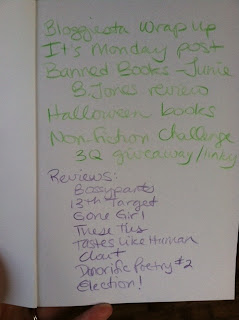 Bloggiesta Wrap Up
It's Monday post
Banned Books - Junie
B. Jones review
Halloween books
Non-fiction Challenge
3Q giveaway/linky
Reviews:
Bossypants
13th Target
Gone Girl
These
Tastes Like Human
Dinorific Poetry #2
Election!